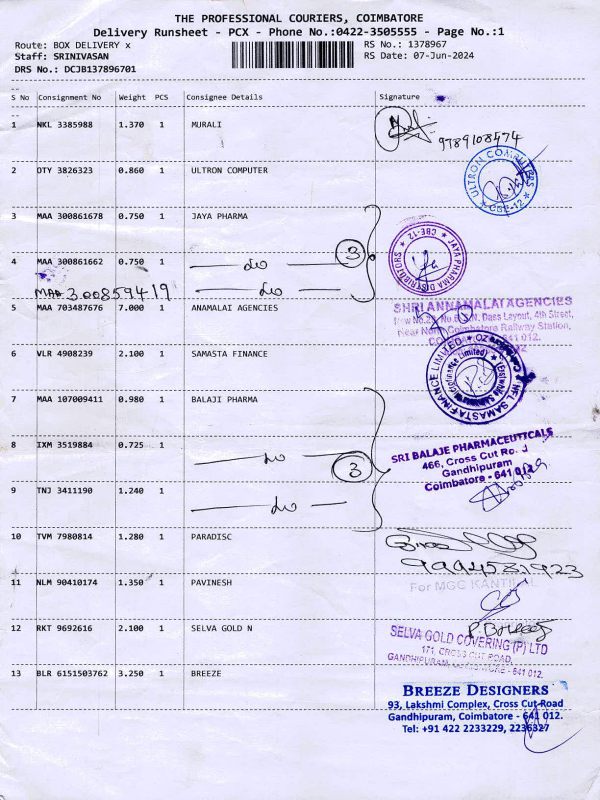 THE PROFESSIONAL COURIERS, COIMBATORE
Delivery Runsheet - PCX - Phone No.:0422-3505555 - Page No.:1
Route: BOX DELIVERY x RS No.: 1378967
Staff: SRINIVASAN RS Date: 07-Jun-2024
DRS No.: DCJB137896701
S No Consignment No Weight PCS Consignee Details Signature
1 NKL 3385988 1.370 1 MURALI
9789108474
2 OTY 3826323 0.860 1 ULTRON COMPUTER
ULTRON COMPUTERS
CBE-12
3 MAA 300861678 0.750 1 JAYA PHARMA
CBE-12
JAYA PHARMA DISTRIBUTORS
3
4 MAA 300861662 0.750 1
MAA 300859419
5 MAA 703487676 7.000 1 ANAMALAI AGENCIES
SHRI ANNAMALAI AGENCIES
Dass Layout, 4th Street,
Near North Coimbatore Railway Station,
6 VLR 4908239 2.100 1 SAMASTA FINANCE
SAMASTA FINANCE LIMITED
7 MAA 107009411 0.980 1 BALAJI PHARMA
8 IXM 3519884 0.725 1
3
SRI BALAJE PHARMACEUTICALS
466, Cross Cut Ro. d
Gandhipuram
Coimbatore - 641 012
9 TNJ 3411190 1.240 1
10 TVM 7980814 1.280 1 PARADISC
9994581923
11 NLM 90410174 1.350 1 PAVINESH
For MGC KANTILAL
12 RKT 9692616 2.100 1 SELVA GOLD N
SELVA GOLD COVERING (P) LTD
171, CROSS CUT ROAD,
GANDHIPURAM, COIMBATORE - 641 012.
13 BLR 6151503762 3.250 1 BREEZE
BREEZE DESIGNERS
93, Lakshmi Complex, Cross Cut Road
Gandhipuram, Coimbatore - 641 012.
Tel: +91 422 2233229, 2236327